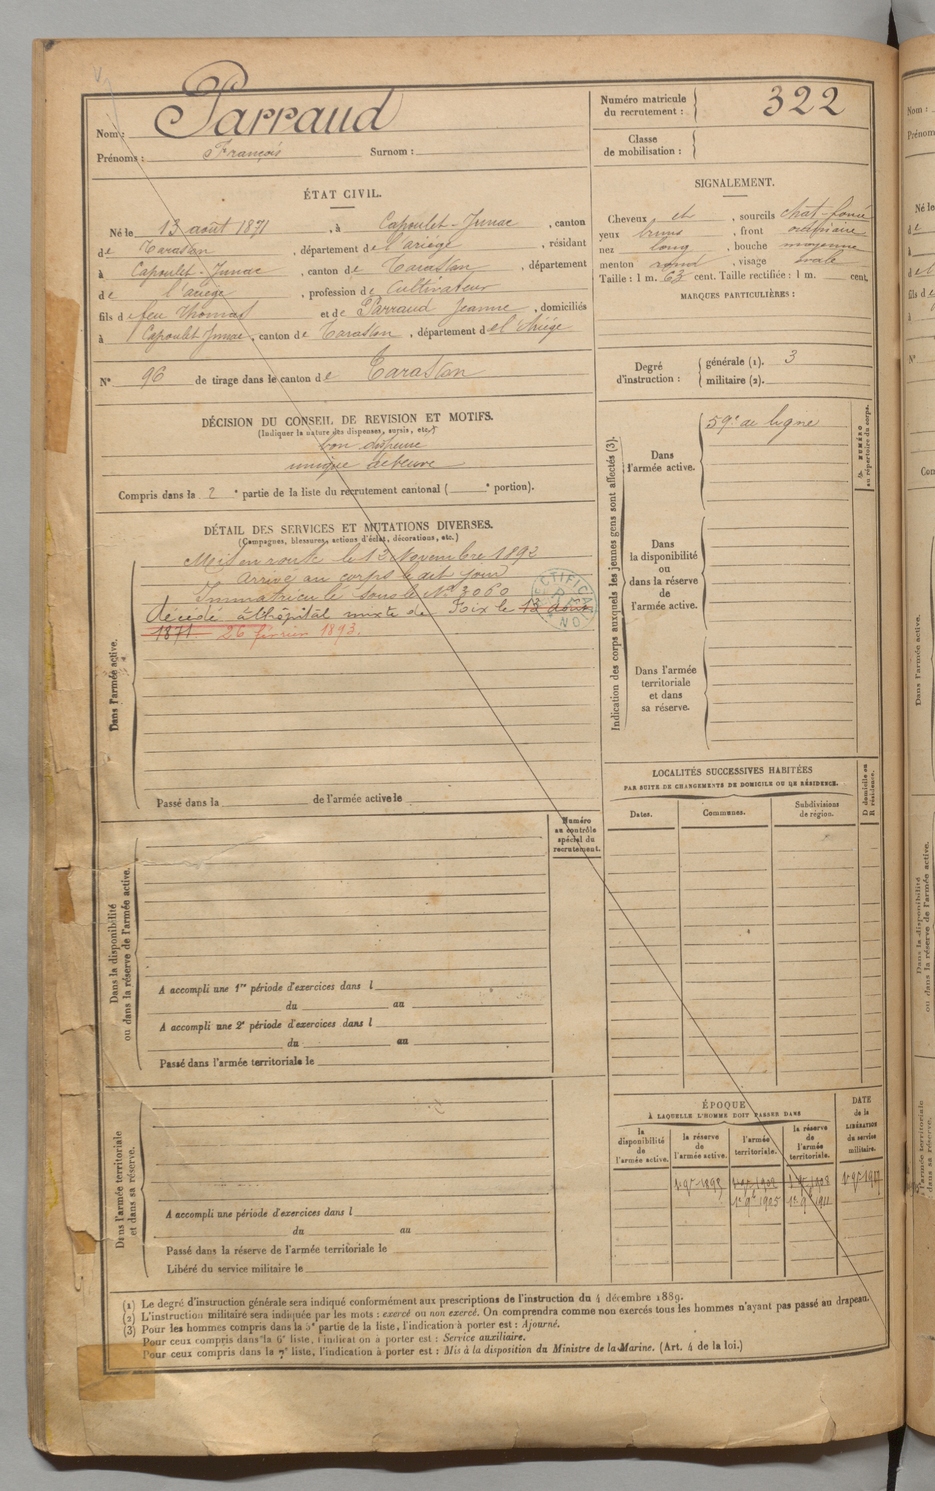 Nom : Parraud
Prénoms : François Surnom :
Numéro matricule du recrutement : 322
Classe de mobilisation :
ÉTAT CIVIL.
Né le 13 août 1871, à Capoulet-Junac, canton
de Tarascon, département de l'ariège, résidant
à Capoulet-Junac, canton de Tarascon, département
de l'ariège, profession de Cultivateur
fils de feu Thomas et de Parraud Jeanne, domiciliés
à Capoulet-Junac, canton de Tarascon, département de l'Ariége
N° 96 de tirage dans le canton de Tarascon
SIGNALEMENT.
Cheveux et, sourcils chat-foncé
yeux bruns, front ordinaire
nez long, bouche moyenne
menton rond, visage ovale
Taille : 1 m. 63 cent. Taille rectifiée : 1 m. cent.
MARQUES PARTICULIÈRES :
Degré d'instruction : générale (1). 3
militaire (2).
DÉCISION DU CONSEIL DE REVISION ET MOTIFS.
(Indiquer la nature des dispenses, sursis, etc.)
bon dispense
unique de veuve
Compris dans la 2e partie de la liste du recrutement cantonal ( e portion).
DÉTAIL DES SERVICES ET MUTATIONS DIVERSES.
(Campagnes, blessures, actions d'éclat, décorations, etc.)
Dans l'armée active.
Mis en route le 13 Novembre 1892
arrivé au corps le dit jour
Immatriculé sous le N° 3060
décédé à l'hôpital mixte de Foix le 13 août
1871. 26 février 1893.
RECTIFICATION
Passé dans la de l'armée active le
Indication des corps auxquels les jeunes gens sont affectés (3).
Dans l'armée active. 59e de ligne
Dans la disponibilité ou dans la réserve de l'armée active.
Dans l'armée territoriale et dans sa réserve.
NUMÉRO au répertoire du corps.
LOCALITÉS SUCCESSIVES HABITÉES
PAR SUITE DE CHANGEMENTS DE DOMICILE OU DE RÉSIDENCE.
Dates. Communes. Subdivisions de région.
D domicile ou R résidence.
Numéro au contrôle spécial du recrutement.
Dans la disponibilité ou dans la réserve de l'armée active.
A accompli une 1re période d'exercices dans l
du au
A accompli une 2e période d'exercices dans l
du au
Passé dans l'armée territoriale le
Dans l'armée territoriale et dans sa réserve.
A accompli une période d'exercices dans l
du au
Passé dans la réserve de l'armée territoriale le
Libéré du service militaire le
ÉPOQUE
À LAQUELLE L'HOMME DOIT PASSER DANS
la disponibilité de l'armée active.
la réserve de l'armée active.
l'armée territoriale.
la réserve de l'armée territoriale.
DATE de la LIBÉRATION du service militaire.
(1) Le degré d'instruction générale sera indiqué conformément aux prescriptions de l'instruction du 4 décembre 1889.
(2) L'instruction militaire sera indiquée par les mots : exercé ou non exercé. On comprendra comme non exercés tous les hommes n'ayant pas passé au drapeau.
(3) Pour les hommes compris dans la 5e partie de la liste, l'indication à porter est : Ajourné.
Pour ceux compris dans la 6e liste, l'indication à porter est : Service auxiliaire.
Pour ceux compris dans la 7e liste, l'indication à porter est : Mis à la disposition du Ministre de la Marine. (Art. 4 de la loi.)